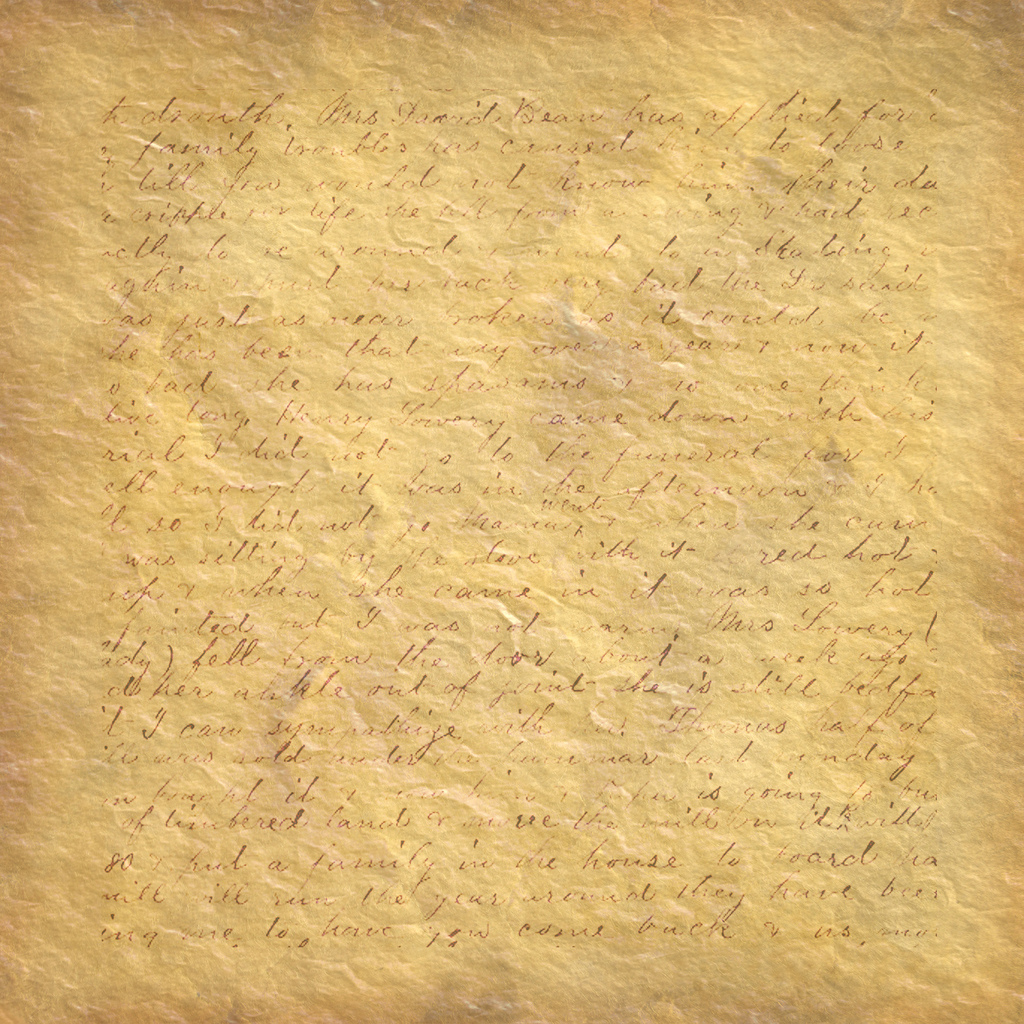 drouth. Mrs David Bean has applied for
family troubles has caused him to loose
till you would not know him. Their da
cripple for life she fell from a swing & had rec
to around & went to a skating
again & hurt his back very bad the Dr said
was just as near broken as it could be
she has been that way over a year & now it
bad she has spasams & no one think
live long. Henry Lowery came down with his
I did not go to the funeral for I
enough it was in the afternoon & I ha
so I did not go Mama went & when she cam
was sitting by the stove with it red hot
up & when she came in it was so hot
fainted but I was not warm. Mrs Lowery (
ady) fell from the door about a week ago
her ankle out of joint she is still bedfa
I can sympathize with her. Thomas half of
was sold under the hammar last unday
bought it & is going to bu
of timbered land & move the mill on it & will
80 & put a family in the house to board ha
mill will run the year around they have been
ing me to have you come back & us